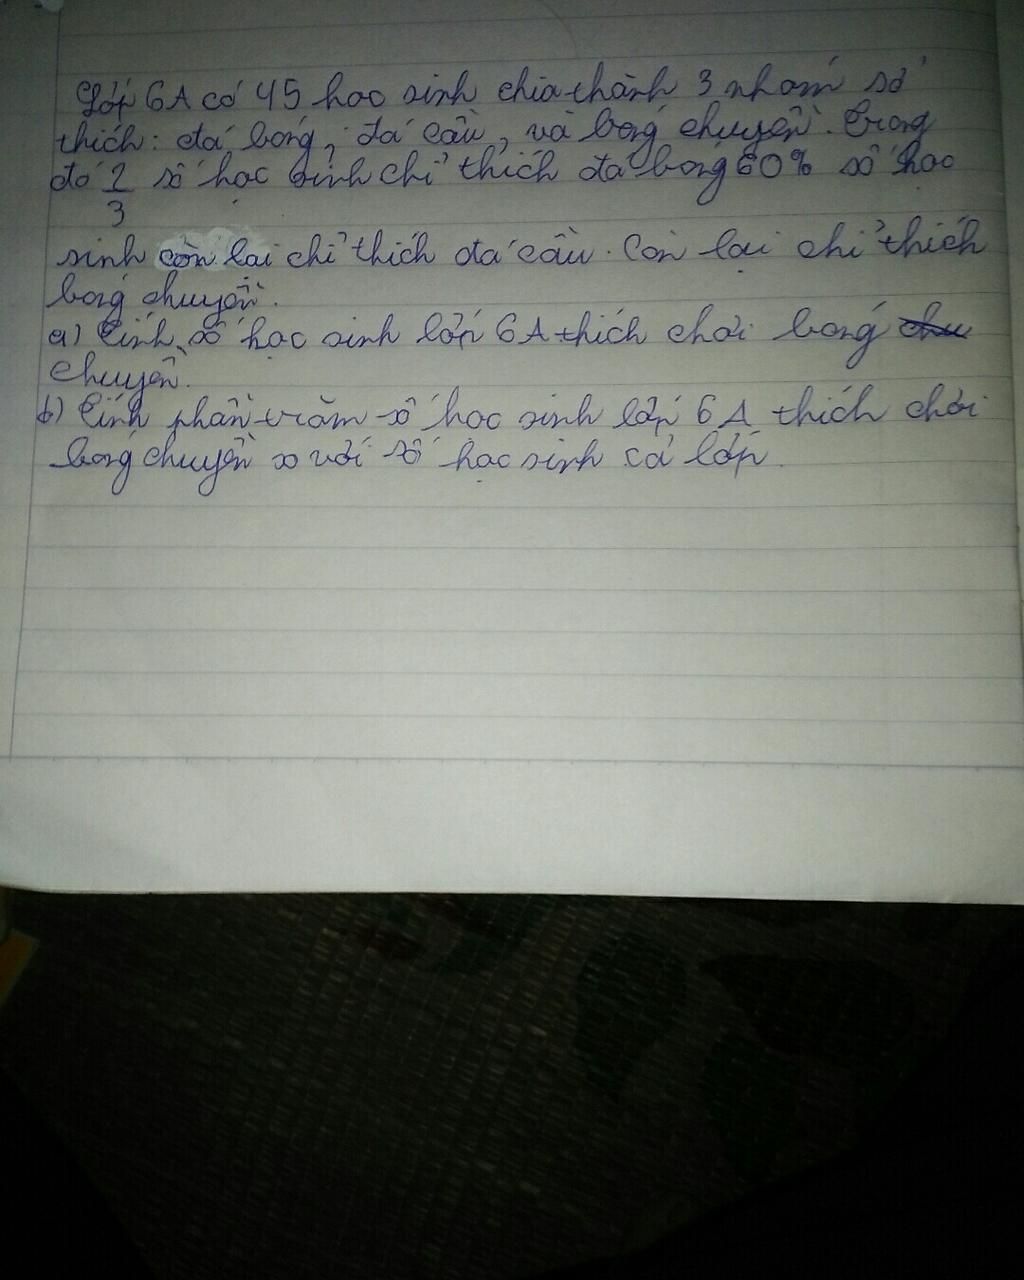 Lớp 6A có 45 học sinh chia thành 3 nhóm sở
thích: đá bóng, đá cầu, và bóng chuyền. Trong
đó 2/3 số học sinh chỉ thích đá bóng 60% số học
sinh còn lại chỉ thích đá cầu. Còn lại chỉ thích
bóng chuyền.
a) Tính số học sinh lớp 6A thích chơi bóng chu
chuyền.
b) Tính phần trăm số học sinh lớp 6A thích chơi
bóng chuyền so với số học sinh cả lớp.